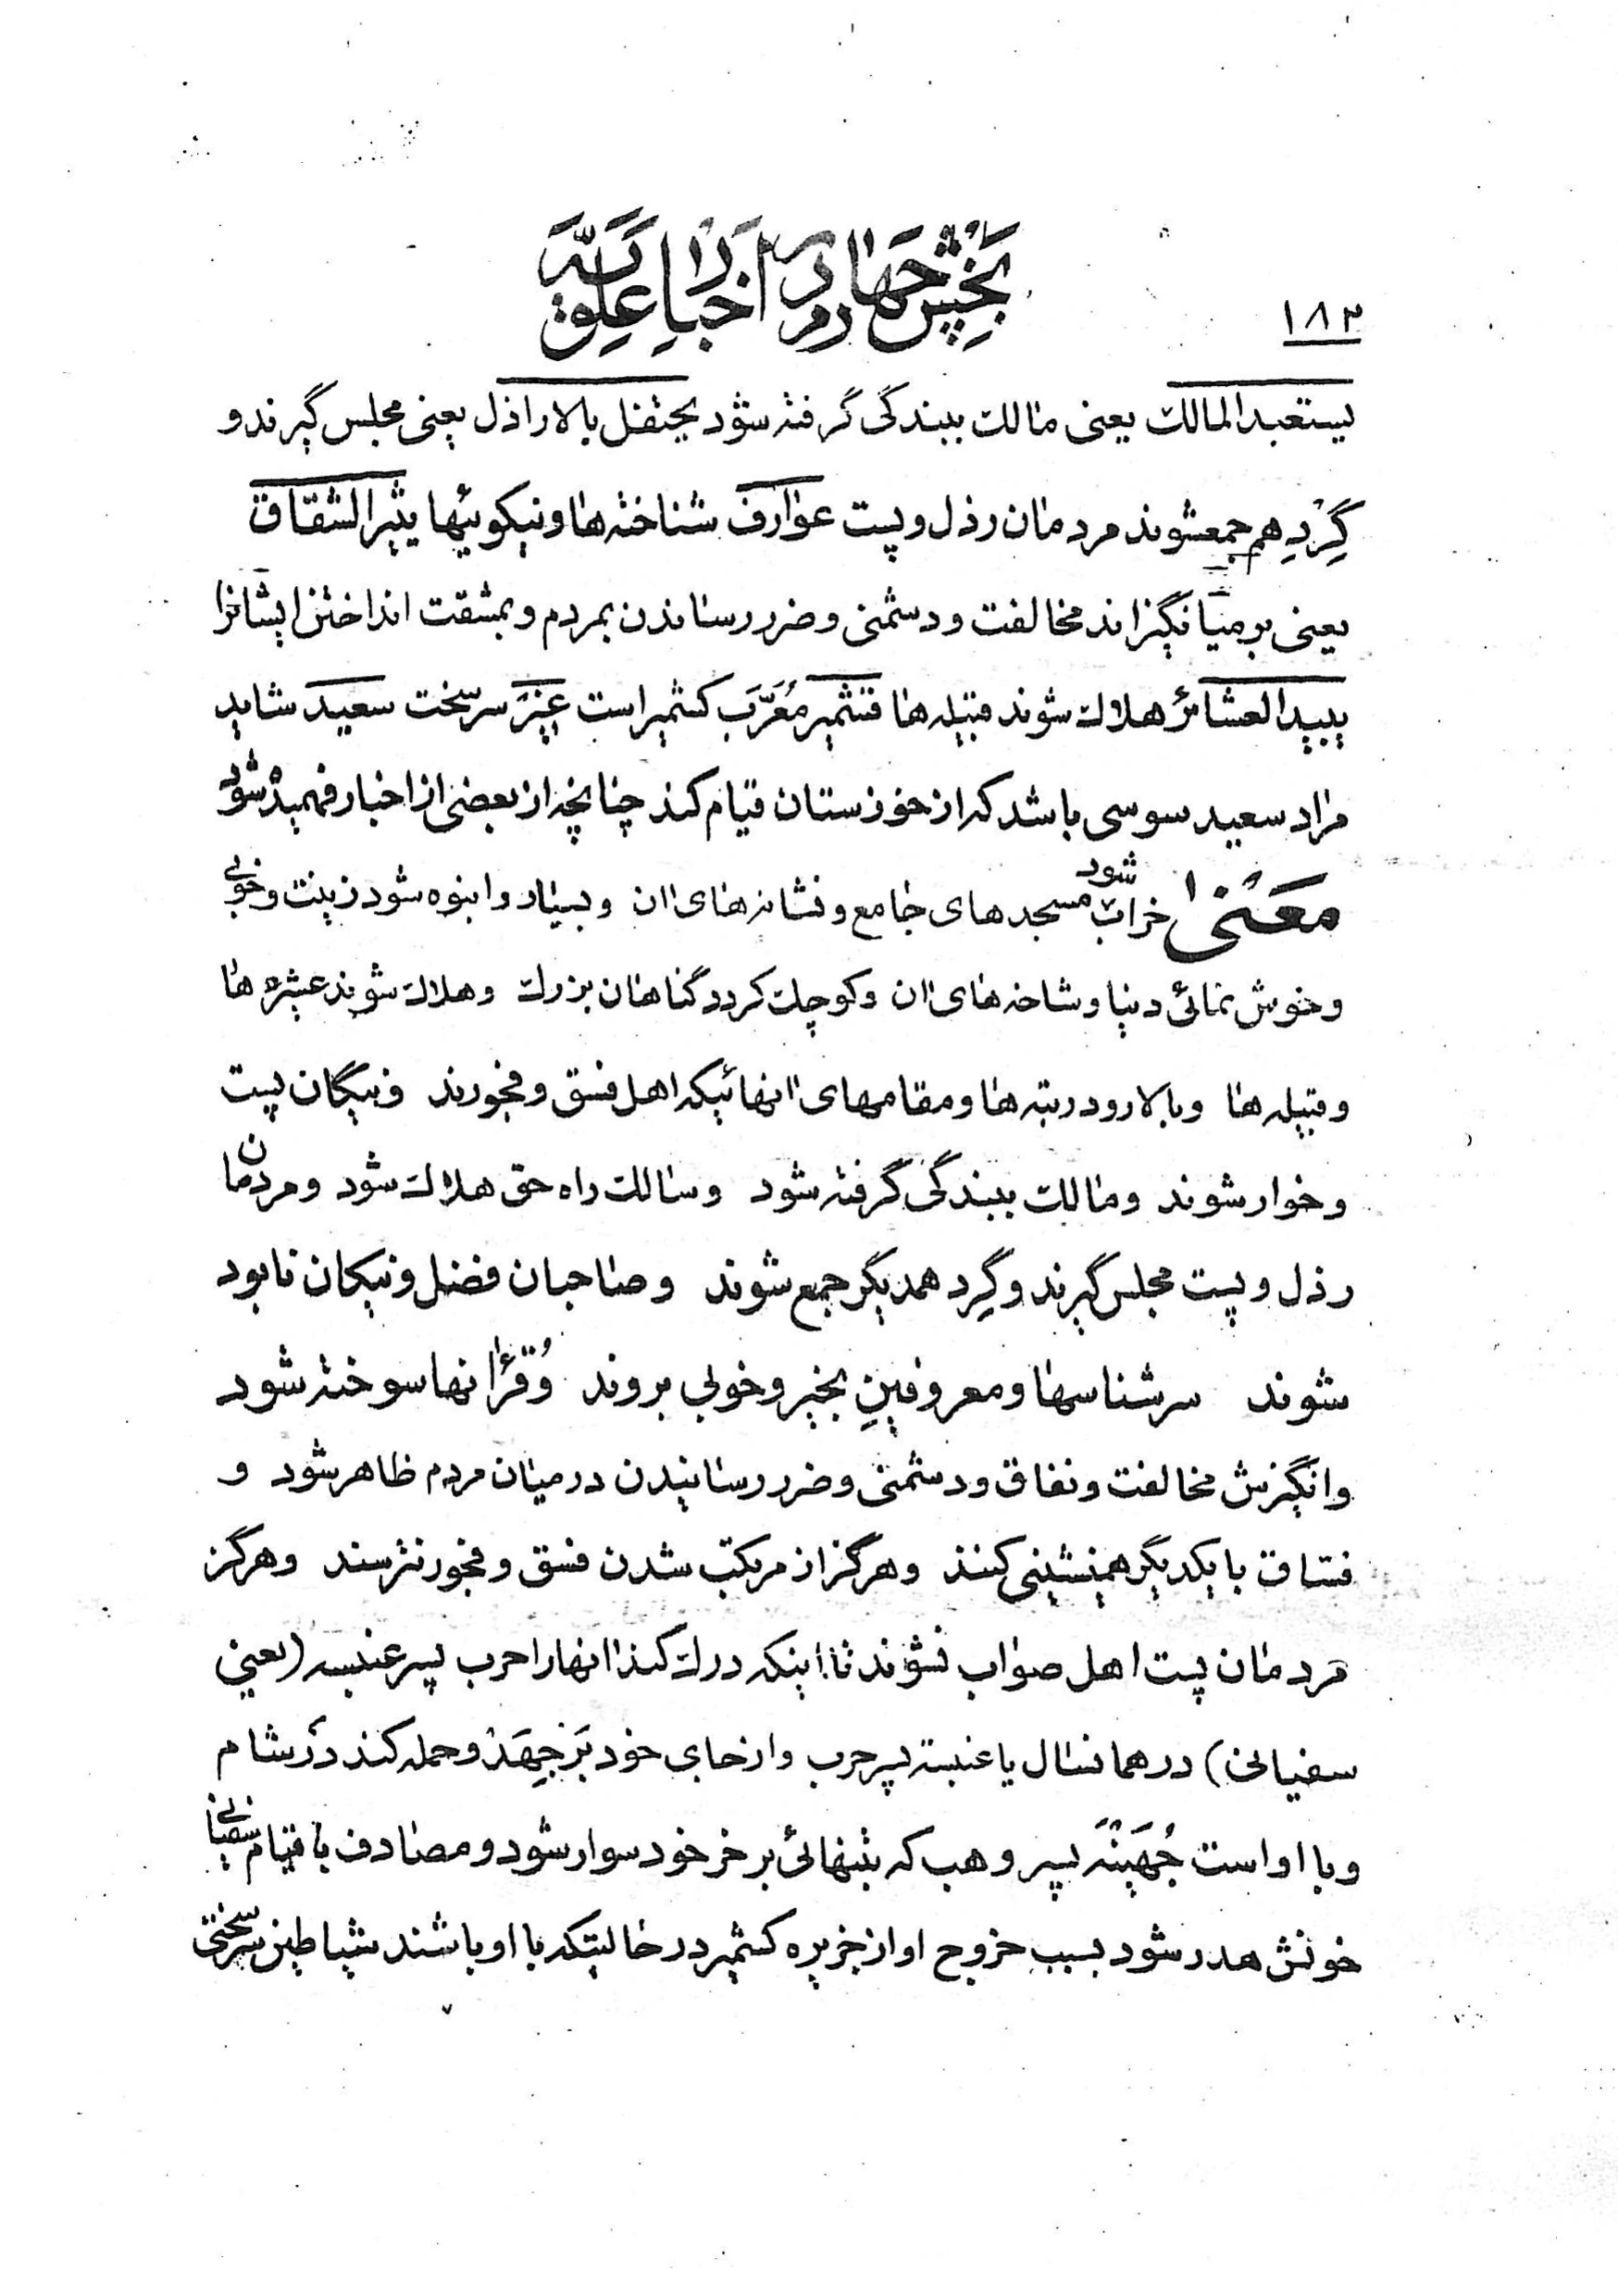 ۱۸۲
بخش چهارم از اخبار علویه
یستعبد المالک یعنی مالک ببندگی گرفته شود یحتفل بالاراذل یعنی مجلس گیرند و
گِرْدِ هم جمعشوند مردمان رذل و پست عوارف شناخته‌ها و نیکوئیها یثیر الشقاق
یعنی بر میانگیزاند مخالفت و دشمنی و ضرر رساندن بمردم و بمشقت انداختن ایشانرا
یبید العشائر هلاک شوند قبیله‌ها قشمیر مُعَرَّب کشمیر است عِیَر سرسخت سعید شاید
مراد سعید سوسی باشد که از خوزستان قیام کند چنانچه از بعضی از اخبار فهمیده شود
معنی خراب شود مسجدهای جامع و نشانه‌های اان و بسیار و انبوه شود زینت و خوبی
و خوش نمائی دنیا و شاخه‌های اان و کوچک گردد گناهان بزرگ و هلاک شوند عشیره‌ها
و قبیله‌ها و بالا رود رتبه‌ها و مقامهای اانهائیکه اهل فسق و فجورند و نیکان پست
و خوار شوند و مالک ببندگی گرفته شود و سالک راه حق هلاک شود و مردمان
رذل و پست مجلس گیرند و گِرد همدیگر جمع شوند و صاحبان فضل و نیکان نابود
شوند سرشناسها و معروفینِ بخیر و خوبی بروند وَ قُرْاانها سوخته شود
و انگیزش مخالفت و نفاق و دشمنی و ضرر رسانیدن در میان مردم ظاهر شود و
فساق با یکدیگر همنشینی کنند و هرگز از مرتکب شدن فسق و فجور نترسند و هرگز
مردمان پست اهل صواب نشوند تا اینکه درک کند اانها را حرب پسر عنبسه (یعنی
سفیانی) در همانسال یا عنبسة پسر حرب و از جای خود بَر جِهَدْ و حمله کند در شام
و با او است جُهَیْنَه پسر وهب که بتنهائی بر خر خود سوار شود و مصادف با قیام سفیانی
خونش هدر شود بسبب خروج او از جزیره کشمیر در حالیتکه با او باشند شیاطین سرسختی